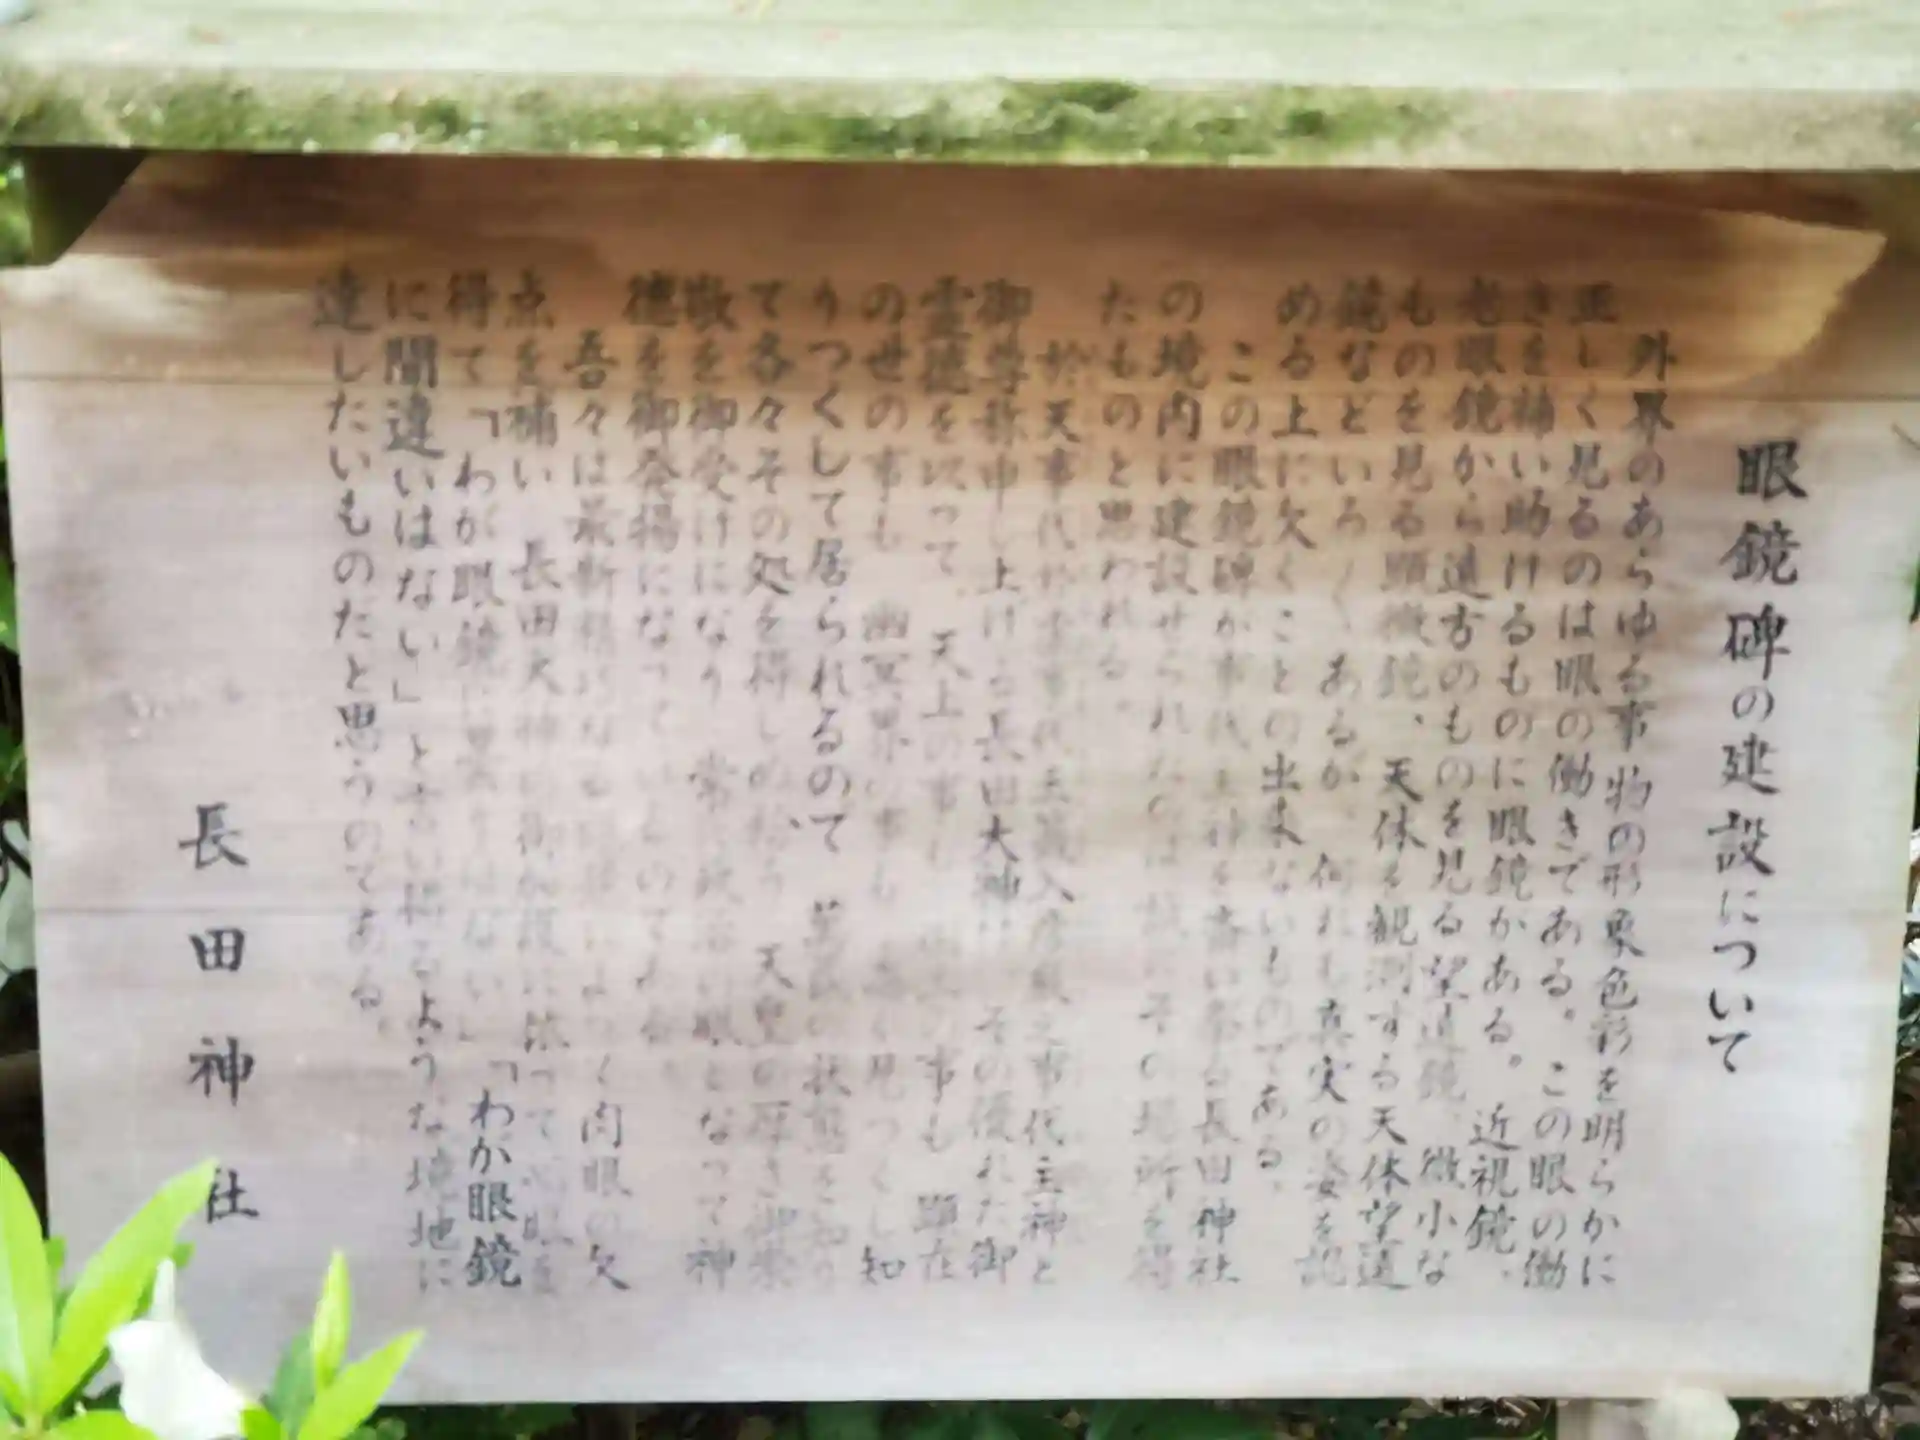 眼鏡碑の建設について
外界のあらゆる事物の形象色彩を明らかに
正しく見るのは眼の働きである。この眼の働
きを補い助けるものに眼鏡がある。近視鏡、
老眼鏡から遠方のものを見る望遠鏡、微小な
ものを見る顕微鏡、天体を観測する天体望遠
鏡などいろ〱あるが何れも真実の姿を認
める上に欠くことの出来ないものである。
この眼鏡碑が事代主神を斎い奉る長田神社
の境内に建設せられたのは誠にその場所を得
たものと思われる。
於天事代於虚事代玉籤入彦厳之事代主神と
御尊称申し上げる長田大神は その優れた御
霊徳を以って、天上の事も 事も 顕在
の世の事も 幽冥界の事も 見つくし知
りつくして居られるので、 の状態を知り
て各々その処を得しめ給う 天皇の厚き御崇
敬を御受けになり 常に 眼となって神
徳を御発揚になっているのである
吾々は最新 な よく肉眼の欠
点を補い 長田大神の御加護に依って心眼を
得て「わが眼鏡に はない」「わが眼鏡
に間違いはない」と言い得るような境地に
達したいものだと思うのである。
長田神社